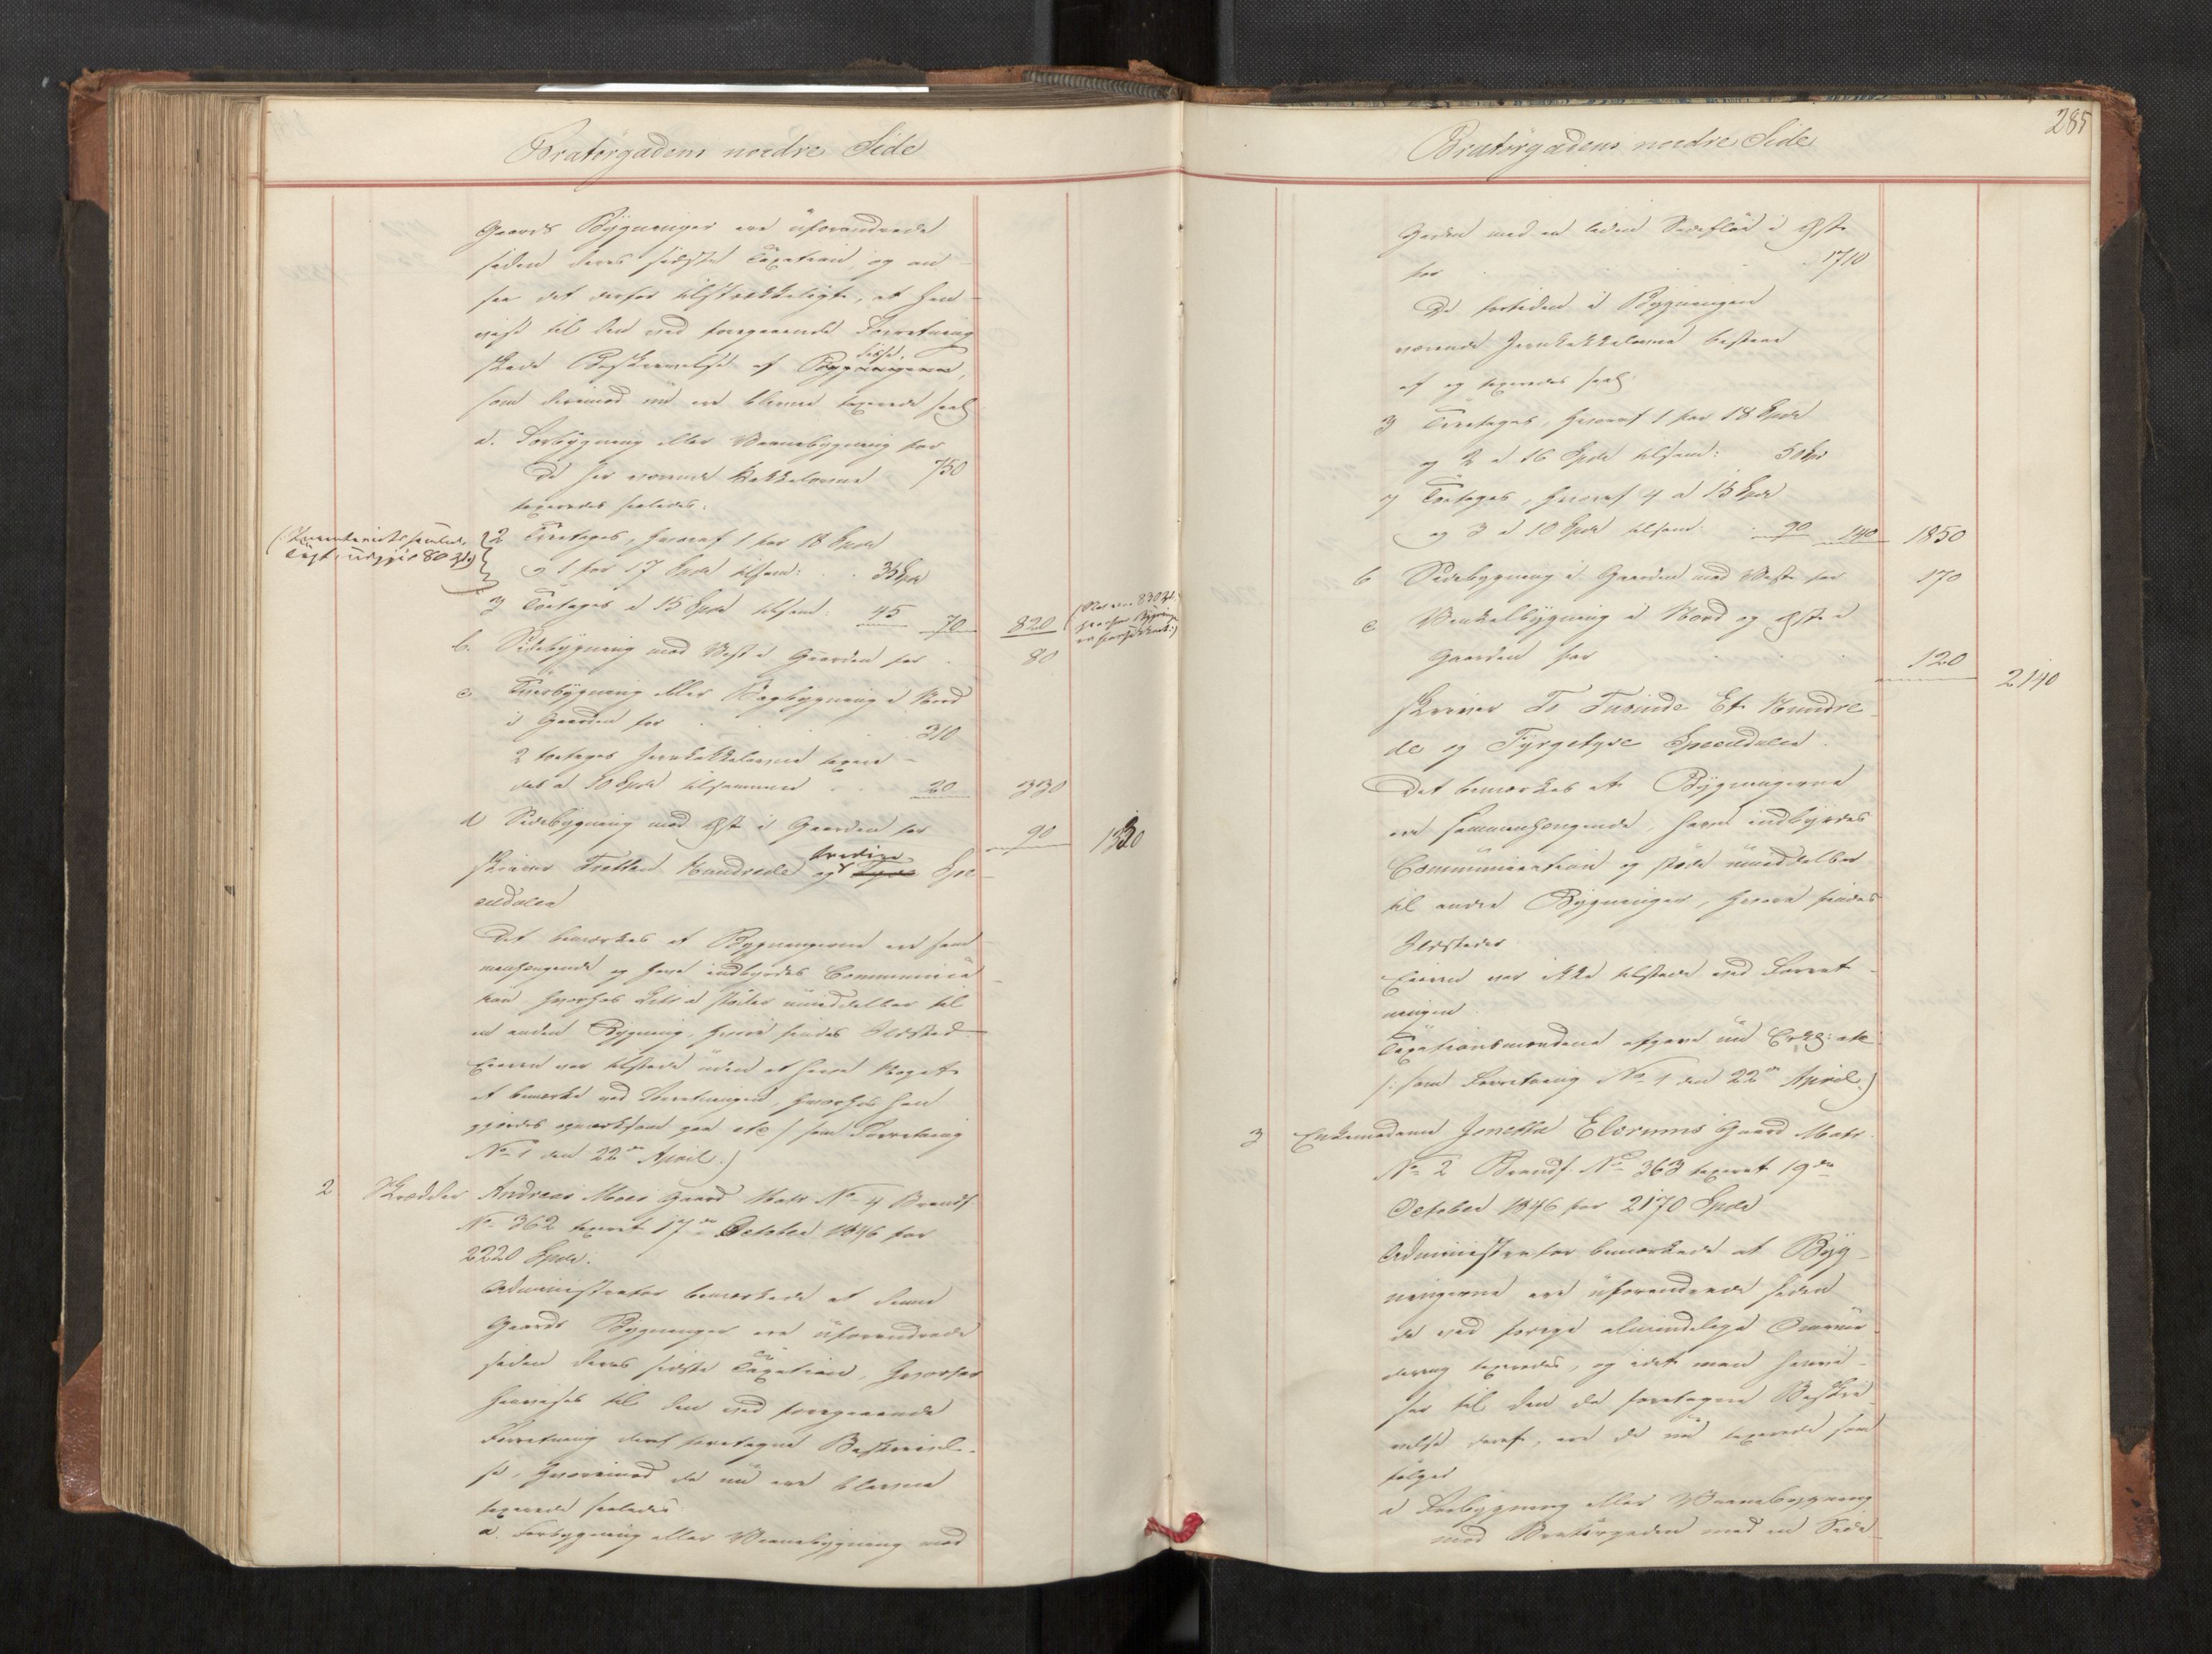 Bratörgadens nordre Side
Gaards Bygninger ere uforandrede
siden deres sidste Taxation, og an-
saa det derfor tilstrækkeligt, at hen-
vise til den ved foregaaende Forretning
skede Beskrivelse af disse, Bygningerne,
som derimod nu ere blevne taxerede saal:
a. Forbygning eller Vaanebygning for
750
De her værende Kakkelovne
taxeredes saaledes:
2 Tretages, hvoraf 1 for 18 Spd
og 1 for 17 Spd tilsam: 35 Spd
3 Toetages à 15 Spd tilsam: 45 70 820
b. Sidebygning mod Vest i Gaarden for 80
c Tversbygning eller Bagbygning i Nord
i Gaarden for 310
2 toetages Jernkakkelovne taxere-
des à 10 Spd tilsammen 20 330
d Sidebygning mod Øst i Gaarden for 90 1320
skriver Tretten Hundrede og tredive Spe-
ciedaler
Det bemærkes at Bygningerne ere sam-
menhængende og have indbyrdes Communica-
tion, hvorhos Litr a støder umiddelbar til
en anden Bygning, hvori findes Ildsted
Eieren var tilstede uden at have Noget
at bemærke ved Forretningen, hvorhos han
gjordes opmærksom paa etc (: som Forretning
No 1 den 22de April:)
2 Skrædder Andreas Moes Gaard Matr No 4 Brandf.
No 362 taxeret 17de October 1846 for
2220 Spd.
Administrator bemærkede at denne
Gaards Bygninger ere uforandrede
siden deres sidste Taxation, hvorfor
henvises til den ved foregaaende
Forretning deraf foretagne Beskrivel-
se, hvorimod de nu ere blevne
taxerede saaledes
a. Forbygning eller Vaanebygning mod
285
Bratörgadens nordre Side
Gaden med en liden Sidefløi i Øst
for 1710
De fortiden i Bygningen
værende Jernkakkelovne bestaae
af og taxeredes saal:
3 Tretages, hvoraf 1 for 18 Spd
og 2 à 16 Spd tilsam: 50 Spd
7 Toetages, hvoraf 4 à 15 Spd
og 3 à 10 Spd tilsam: 90 140 1850
b Sidebygning i Gaarden mod Vest for 170
c Vinkelbygning i Nord og Øst i
Gaarden for 120 2140
skriver To Tusinde Et Hundre-
de og Fyrgetyve Speciedaler.
Det bemærkes at Bygningerne
ere sammenhængende, have indbyrdes
Communication og støde umiddelbar
til andre Bygninger, hvori findes
Ildsteder
Eieren var ikke tilstede ved Forret-
ningen
Taxationsmændene afgave nu Erkl: etc
(: som Forretning No 1 den 22de April:)
3 Enkemadame Jenetta Elerums Gaard Matr.
No 2 Brandf. No 363 taxeret 19de
October 1846 for 2170 Spd
Administrator bemærkede at Byg-
ningerne ere uforandrede siden
de ved forrige almindelige Omvur-
dering taxeredes, og idet man henvi-
ser til den da foretagne Beskri-
velse deraf, ere de nu taxerede som
følger
a Forbygning eller Vaanebygning
mod Bratørgaden med en Side-